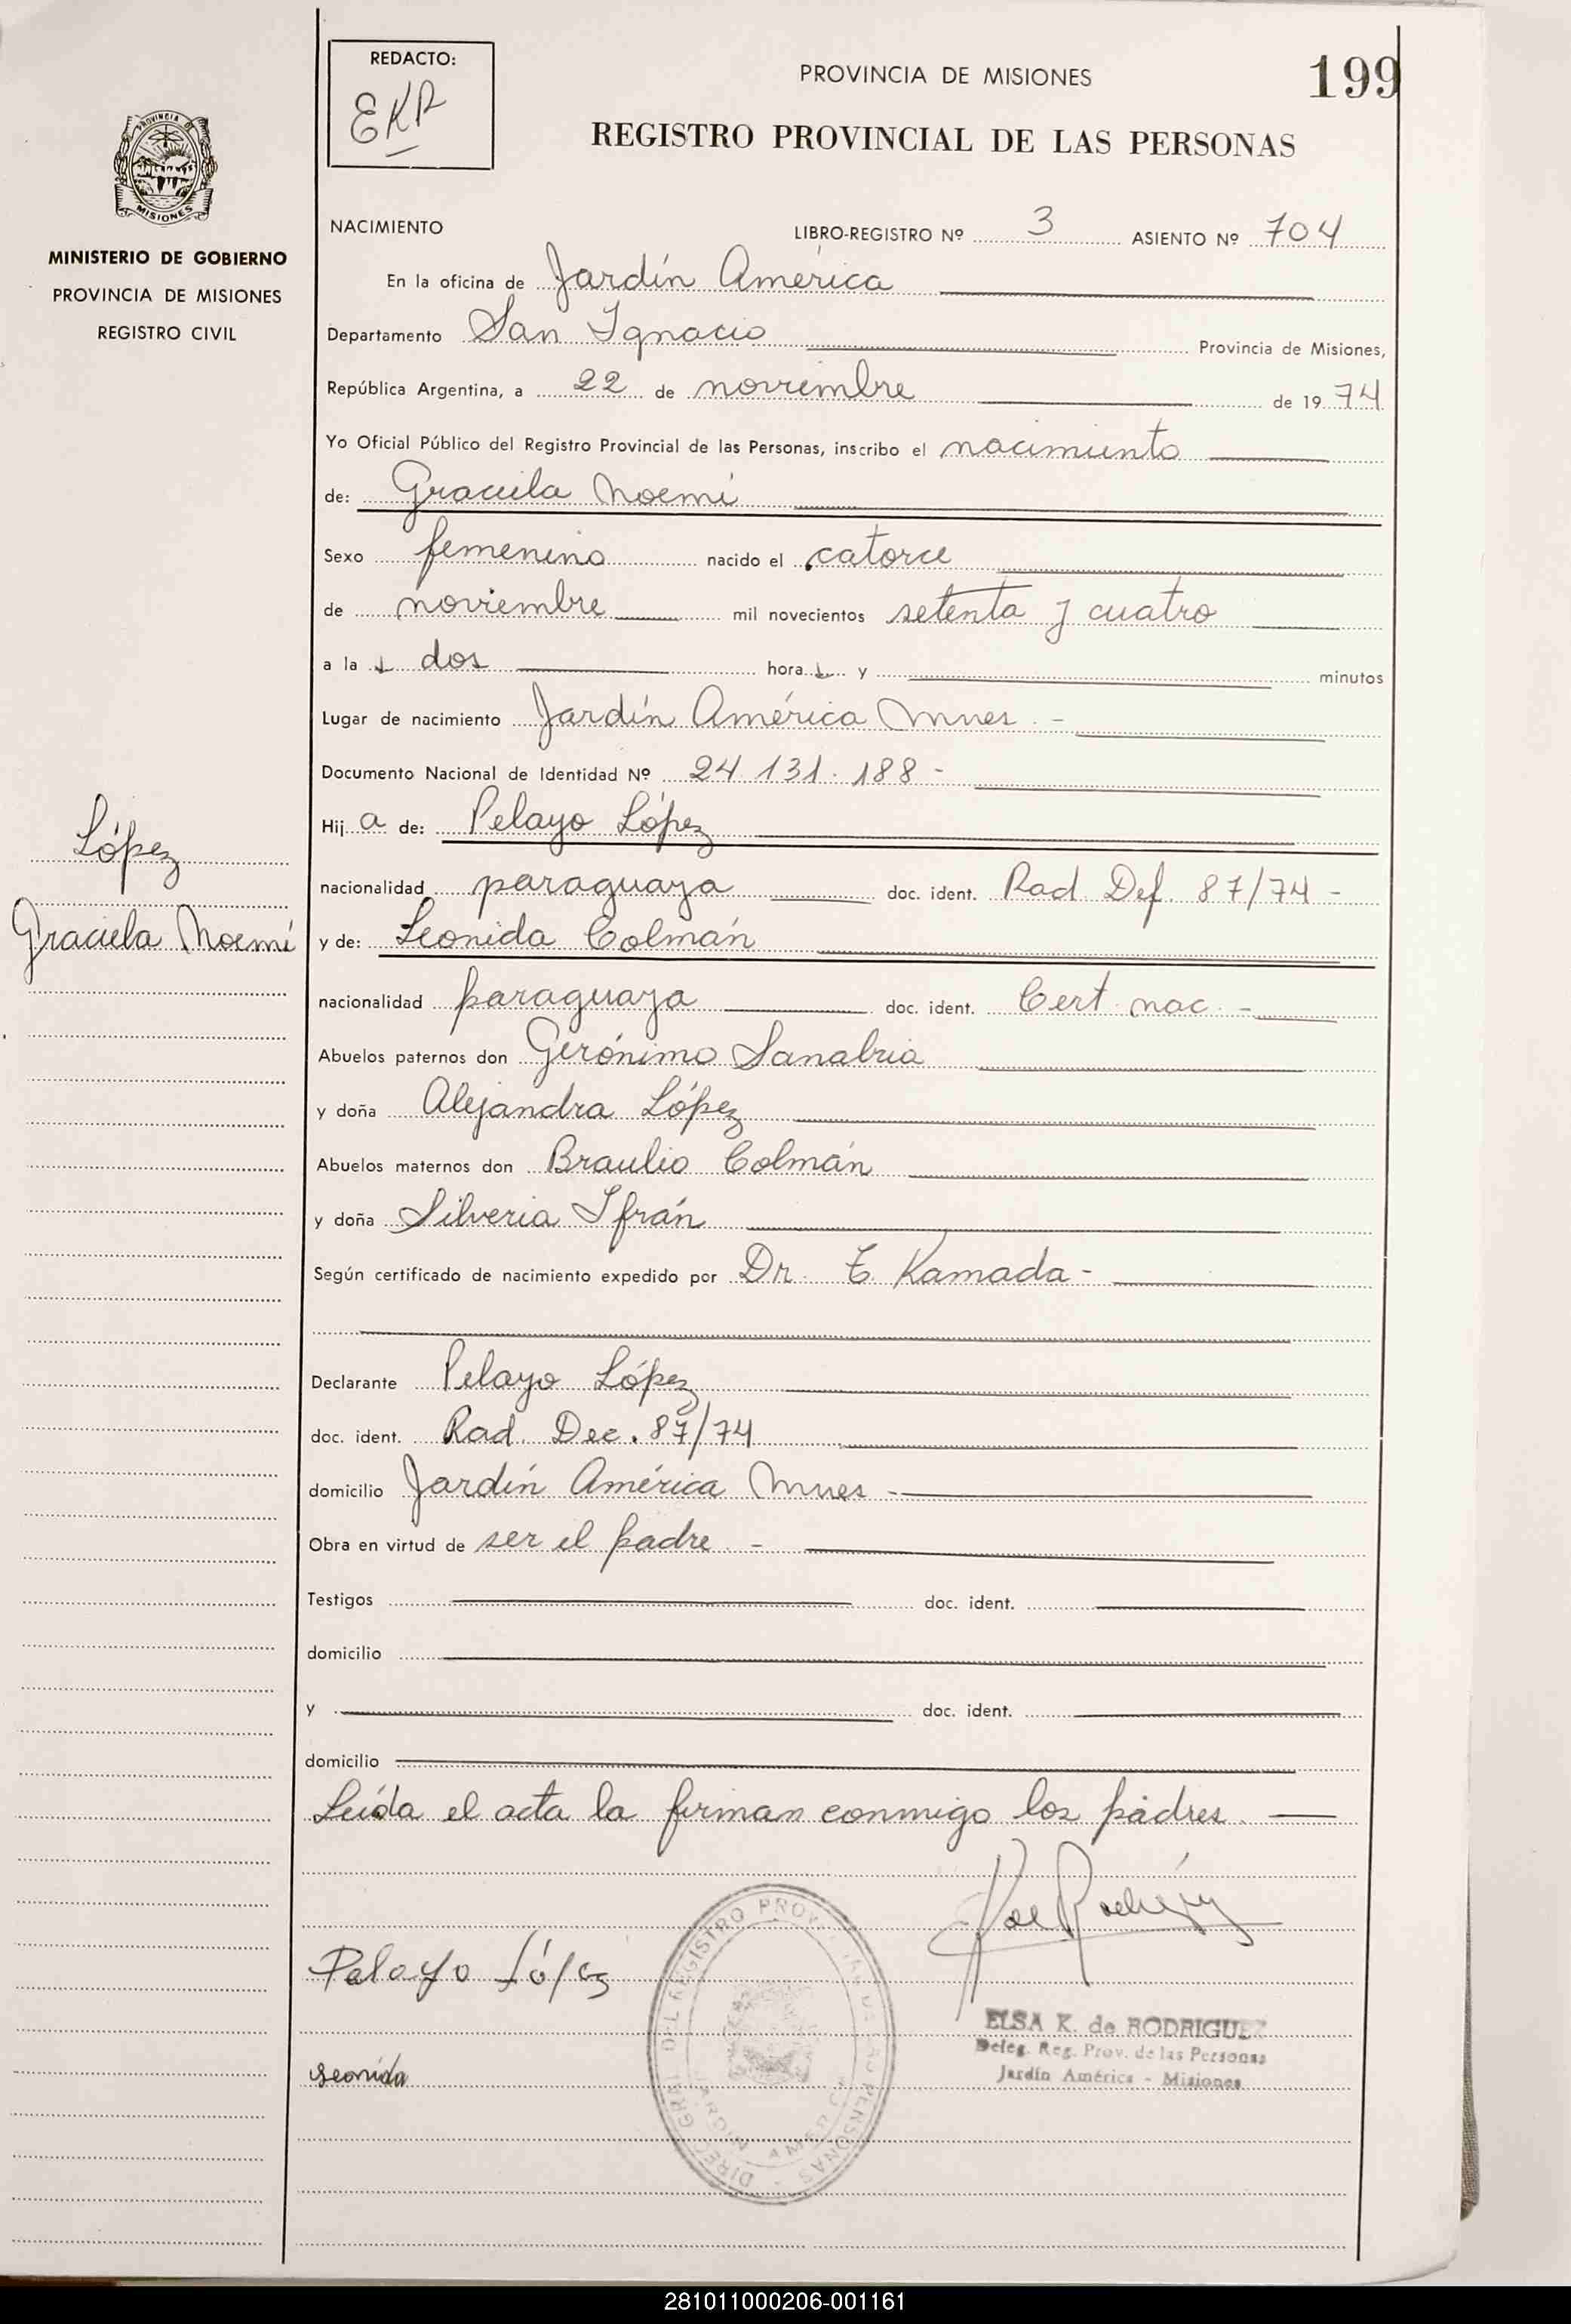 REDACTO:
EKR
PROVINCIA DE MISIONES
199
REGISTRO PROVINCIAL DE LAS PERSONAS
PROVINCIA DE
MISIONES
MINISTERIO DE GOBIERNO
PROVINCIA DE MISIONES
REGISTRO CIVIL
NACIMIENTO
LIBRO-REGISTRO Nº 3 ASIENTO Nº 704
En la oficina de Jardín América
Departamento San Ignacio Provincia de Misiones,
República Argentina, a 22 de noviembre de 1974
Yo Oficial Público del Registro Provincial de las Personas, inscribo el nacimiento
de: Graciela Noemí
Sexo femenino nacido el catorce
de noviembre mil novecientos setenta y cuatro
a la s dos hora s y minutos
Lugar de nacimiento Jardín América Mnes -
Documento Nacional de Identidad Nº 24.131.188 -
Hij a de: Pelayo López
nacionalidad paraguaya doc. ident. Rad. Def. 87/74 -
y de: Leonida Colmán
nacionalidad paraguaya doc. ident. Cert. nac. -
Abuelos paternos don Gerónimo Sanabria
y doña Alejandra López
Abuelos maternos don Braulio Colmán
y doña Silveria Ifrán
Según certificado de nacimiento expedido por Dr. T. Kamada -
Declarante Pelayo López
doc. ident. Rad. Dec. 87/74
domicilio Jardín América Mnes -
Obra en virtud de ser el padre. -
Testigos doc. ident.
domicilio
y doc. ident.
domicilio
Leída el acta la firman conmigo los padres.
López
Graciela Noemí
Pelayo López
Leonida
ELSA K. de RODRIGUEZ
Deleg. Reg. Prov. de las Personas
Jardín América - Misiones
281011000206-001161